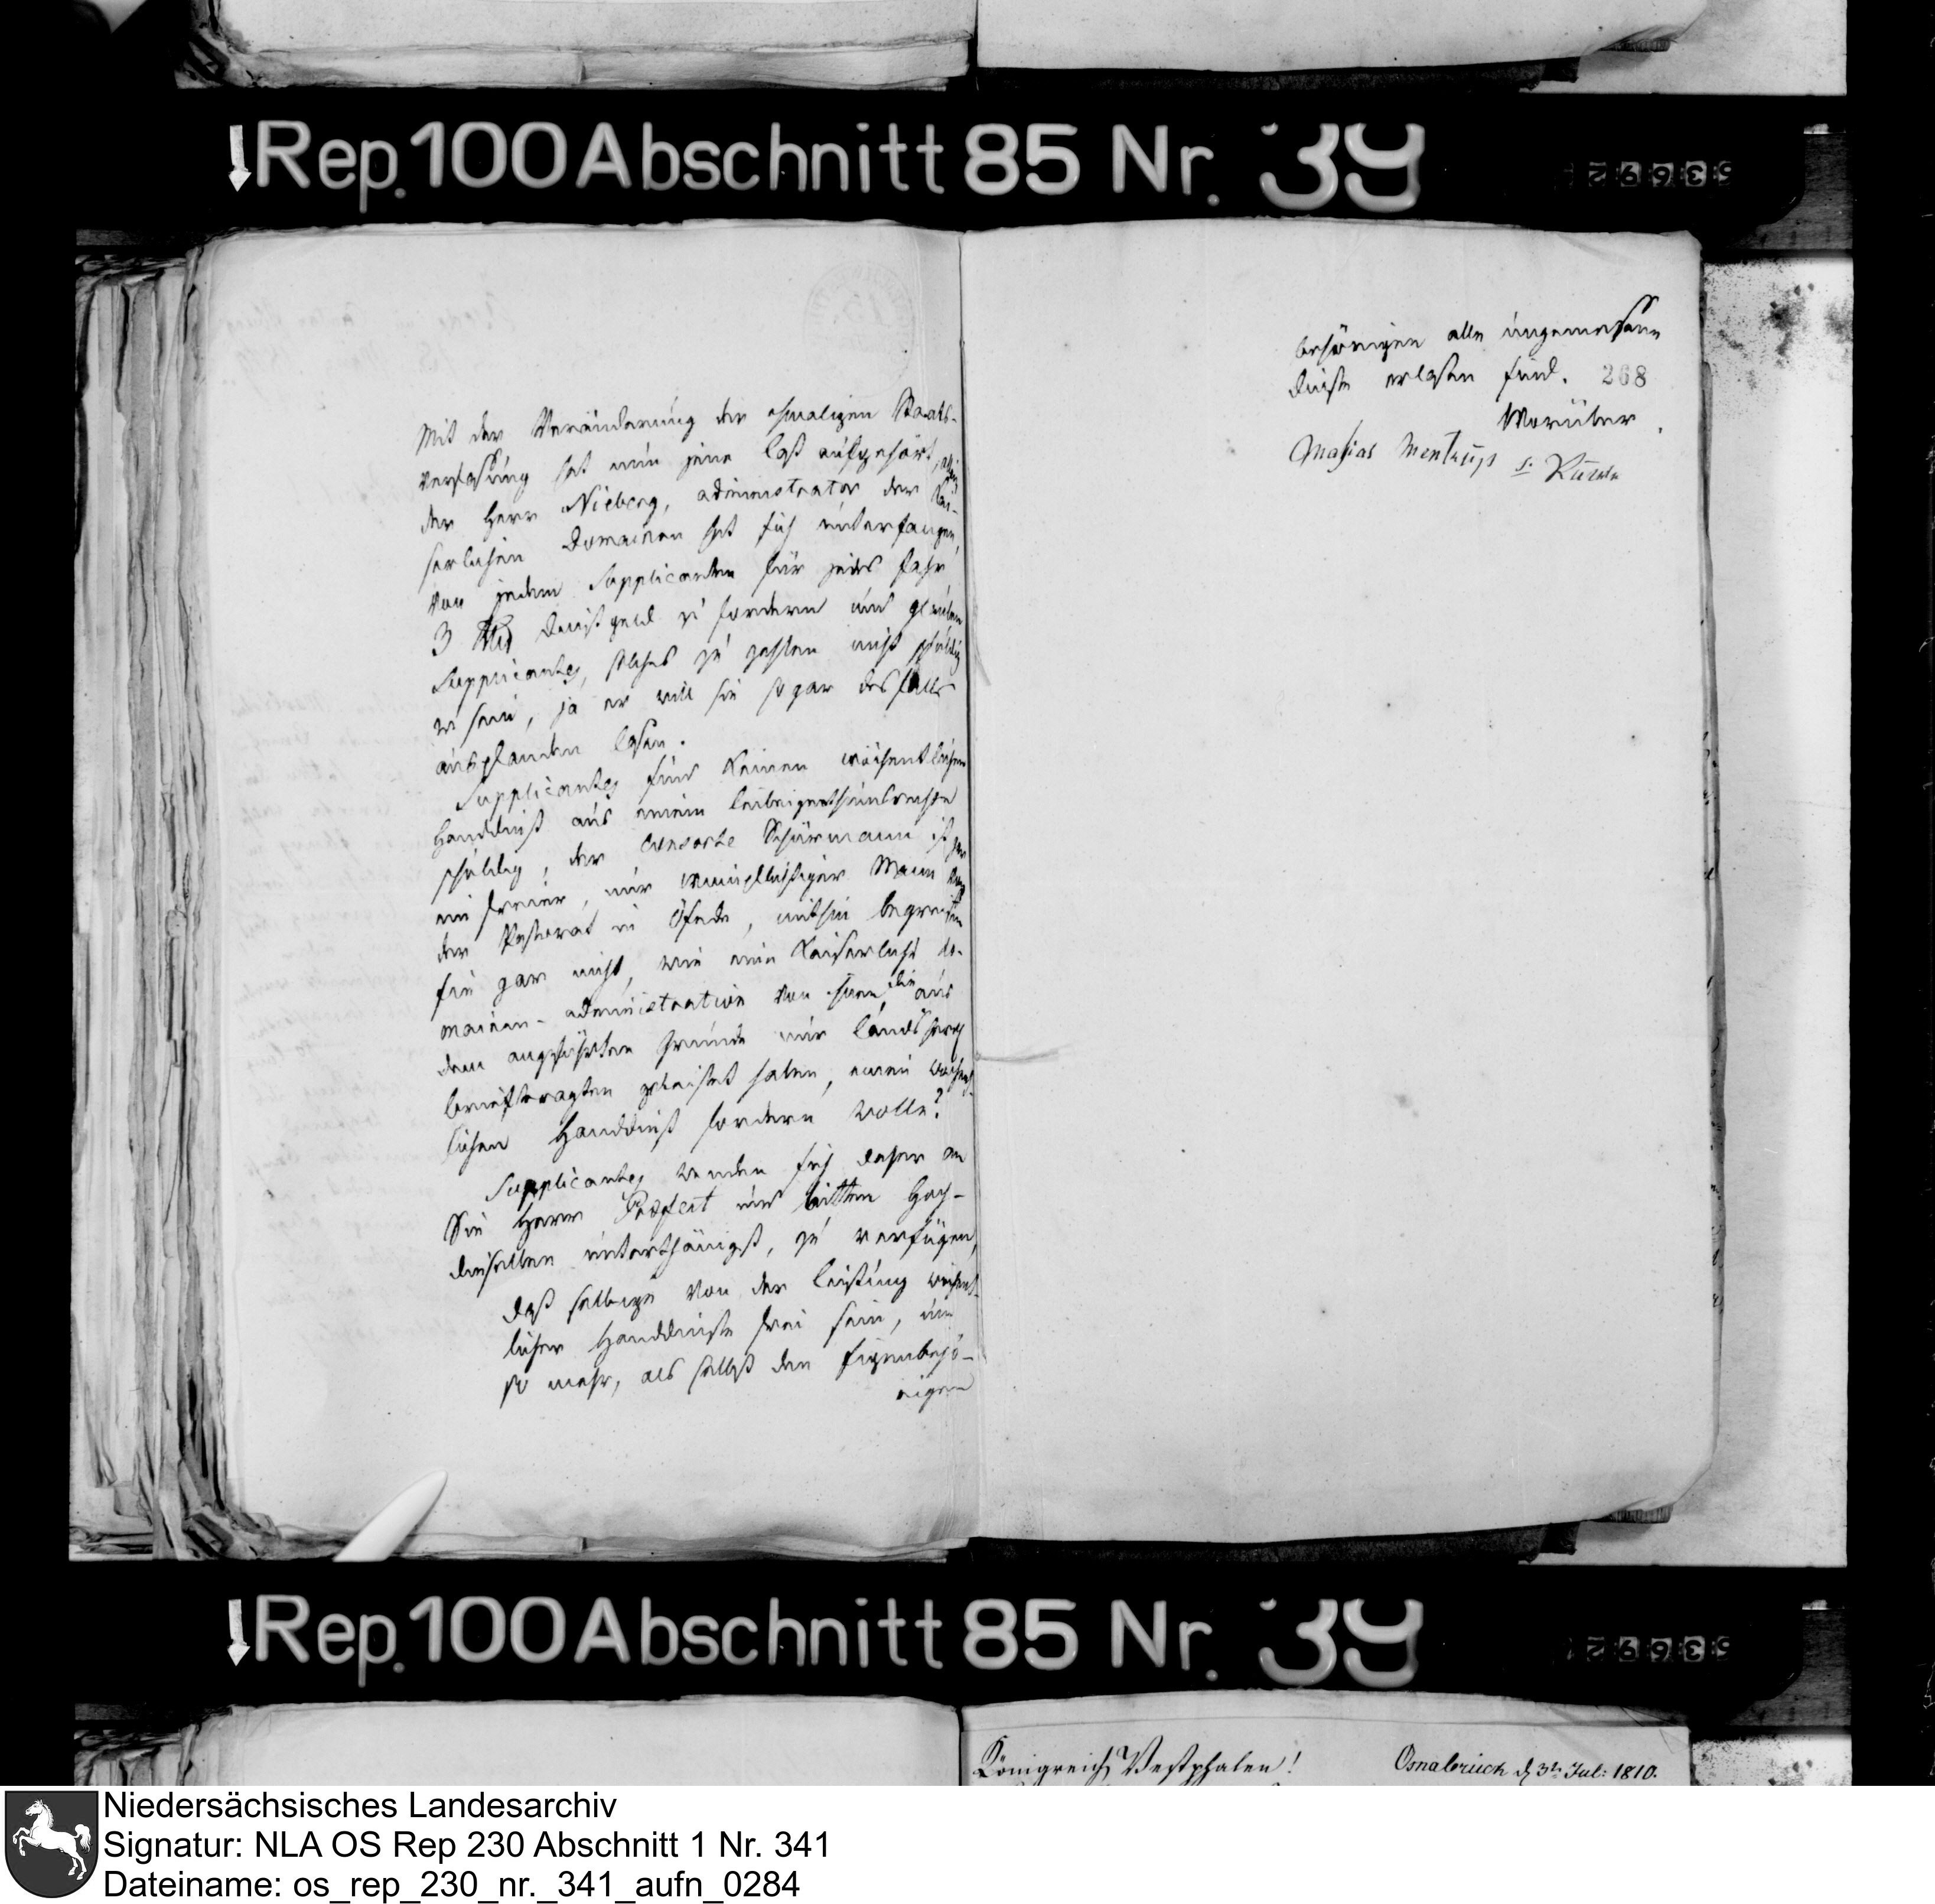 Rep. 100 Abschnitt 85 Nr. 39
Mit der Veränderung der ehmaligen Staats-
verfaßung hat nun jene Last aufgehört, allein
der Herr Nieberg, administrator der Kai-
serlichen Domainen hat sich unterfangen,
von jedem Supplicanten für jedes Jahr
3 Rthlr Dienstgeld zu fordern und glauben
Supplicantes, solches zu zahlen nicht schuldig
zu sein, ja er will sie sogar desfalls
auspfanden laßen.
Supplicantes sind keinen wöchentlichen
Handdienst aus einem Leibeigenthumsrechte
schuldig, der Consorte Schürmann ist gar
ein freier, nur pflichtiger Mann
der Pastorat in Öesede, mithin begreifen
sie gar nicht, wie eine Kaiserliche Do-
mainen-administration von ihnen, die aus
dem angeführten Grunde nur Landsherrl
geleistet haben, einen wöchent-
lichen Handdienst fordern wolle?
Supplicantes wenden sich daher an
Sie Herr Praefect und bitten Hoch-
dieselben unterthänigst, zu verfügen,
daß selbige von der Leistung wöchent-
licher Handdienste frei sein, um
so mehr, als selbst den Eigenbehö-
rigen
behörigen alle ungemeßene
Dienste erlaßen sind. 268
Worüber.
Mathias Mentrup
Rep. 100 Abschnitt 85 Nr. 39
Königreich Westphalen!
Osnabrück d 3t Jul: 1810.
Niedersächsisches Landesarchiv
Signatur: NLA OS Rep 230 Abschnitt 1 Nr. 341
Dateiname: os_rep_230_nr._341_aufn_0284